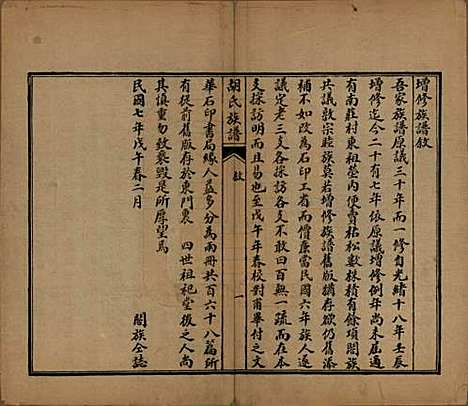 增修族譜敘
吾家族譜原議三十年而一修自光緒十八年壬辰
增修迄今二十有七年依原議增修例年尚未屆適
有南莊村東祖塋內便賣枯松數株積有餘項閤族
共議敦宗睦族莫若增修族譜舊版猶存欲仍舊添
補不如改為石印工省而價廉當民國六年族人遂
議定老三支各採訪各支不敢曰百無一疏而在本
支採訪明而且易也至戊午年春校對甫畢付之文
胡氏族譜
敘
一
華石印書局緣人益多分為兩冊共百六十八篇所
有從前舊版存於東門裏 四世祖祀堂後之人尚
其慎重勿致褻毀是所厚望焉
民國七年戊午春二月
閤族仝誌